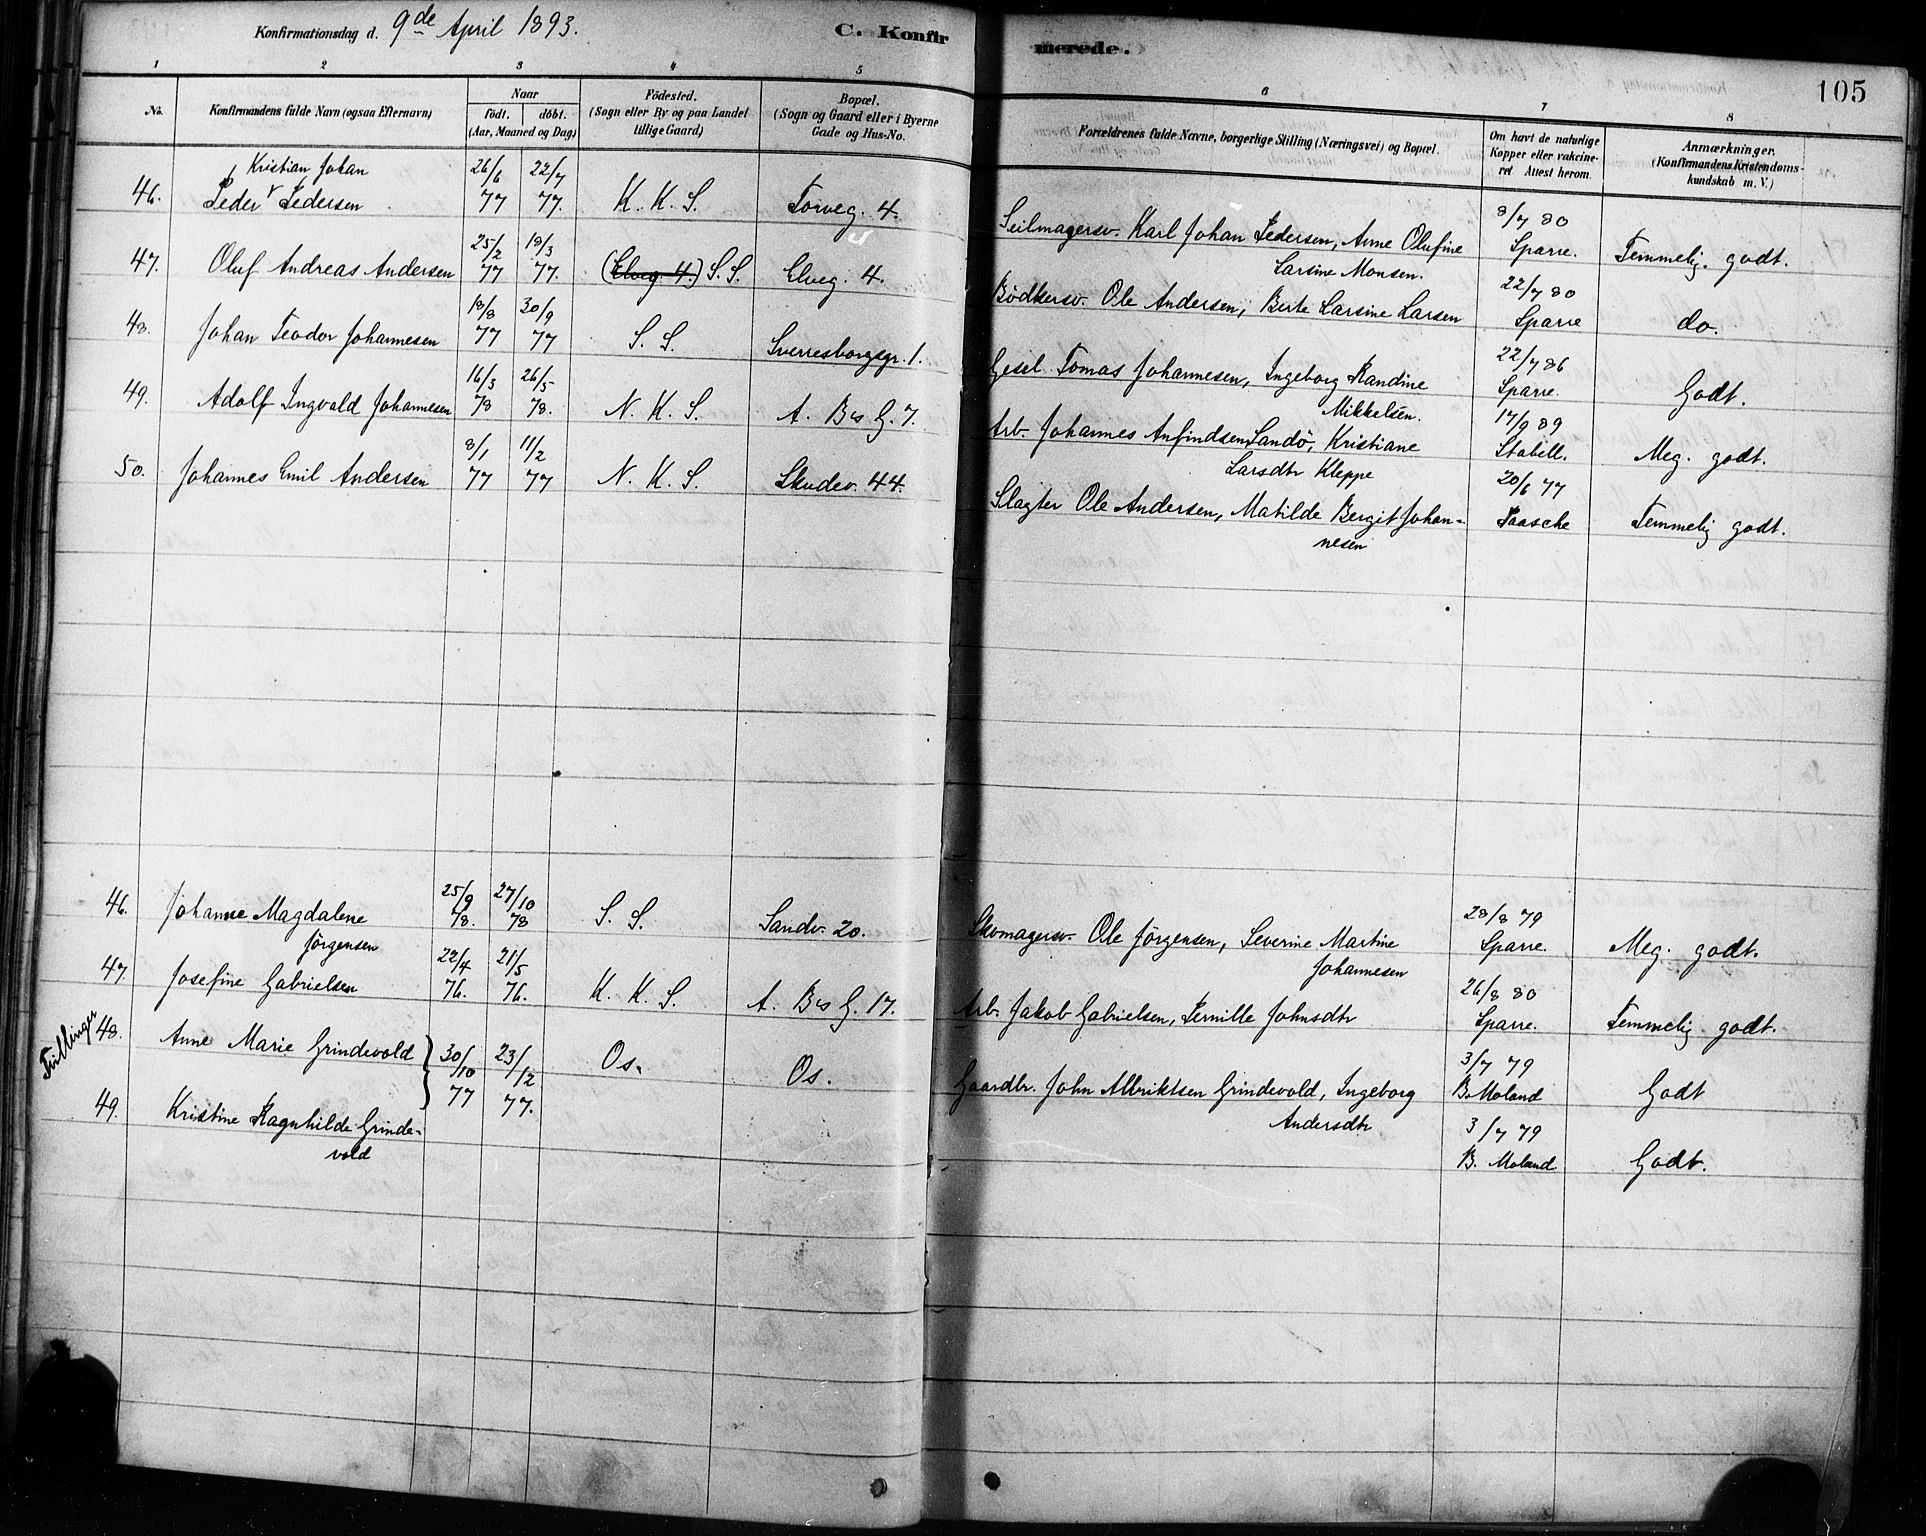 Konfirmationsdag d. 9de April 1893.
C. Konfirmerede.
105
1 2 3 4 5 6 7 8
No.
Konfirmandens fulde Navn (ogsaa Efternavn)
Naar
födt. döbt.
(Aar, Maaned og Dag)
Födested.
(Sogn eller By og paa Landet
tillige Gaard)
Bopæl.
(Sogn og Gaard eller i Byerne
Gade og Hus-No.
Forældrenes fulde Navne, borgerlige Stilling (Næringsvei) og Bopæl.
Om havt de naturlige
Kopper eller vakcine-
ret Attest herom.
Anmærkninger.
(Konfirmandens Kristendoms-
kundskab m. V.)
Kristian Johan
46. Peder Pedersen 26/6 77 22/7 77. K. K. S. Torveg. 4. Seilmagersv. Karl Johan Pedersen, Anne Olufine 8/7 80 Sparre. Temmelig godt.
Larsine Monsen.
47. Oluf Andreas Andersen 25/2 77 18/3 77. (Elveg. 4.) S. S. Elveg. 4. Bödkersv. Ole Andersen, Berte Larsine Larsen 22/7 80 Sparre do.
48. Johan Teodor Johannesen 18/8 77 30/9 77 S. S. Sverresborgsgr. 1. Gesel Tomas Johannesen, Ingeborg Randine 22/7 86 Sparre. Godt.
Mikkelsen.
49. Adolf Ingvald Johannesen 16/3 78 26/5 78. N. K. S. A. Bs G. 7. Arb. Johannes Anfindsen Sandö, Kristiane 17/9 89 Stabell. Meg. godt.
Larsdtr Kleppe
50. Johannes Emil Andersen 8/1 77 11/2 77 N. K. S. Skudev. 44. Slagter Ole Andersen, Matilde Bergit Johan-
nesen 20/6 77 Paasche Temmelig godt.
46. Johanne Magdalene
Jörgensen 25/9 78. 27/10 78 S. S. Sandv. 20. Skomagersv. Ole Jörgensen, Severine Martine
Johannesen 28/8 79 Sparre. Meg. godt.
47. Josefine Gabrielsen 22/4 76. 21/5 76. K. K. S. A. Bs G. 17. Arb. Jakob Gabrielsen, Pernille Johnsdtr 26/8 80 Sparre. Temmelig godt.
Tvillinger
48. Anne Marie Grindevold } 30/10 77 23/12 77. Os. Os. Gaardbr. John Albriktsen Grindevold, Ingeborg
Andersdtr 3/7 79 B. Moland Godt
49. Kristine Ragnhilde Grinde-
vold 3/7 79 B. Moland Godt.